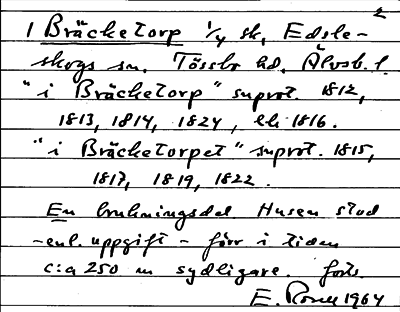 2
1 Bräcketorp 1/4 sk, Edsle-
skogs sn. Tössbo hd. Älvsb. l.
"i Bräcketorp" suprot. 1812,
1813, 1814, 1824, lk 1816.
"i Bräcketorpet" suprot. 1815,
1817, 1819, 1822.
En brukningsdel Husen stod
-enl. uppgift - förr i tiden
c:a 250 m sydligare. forts.
E. 1964